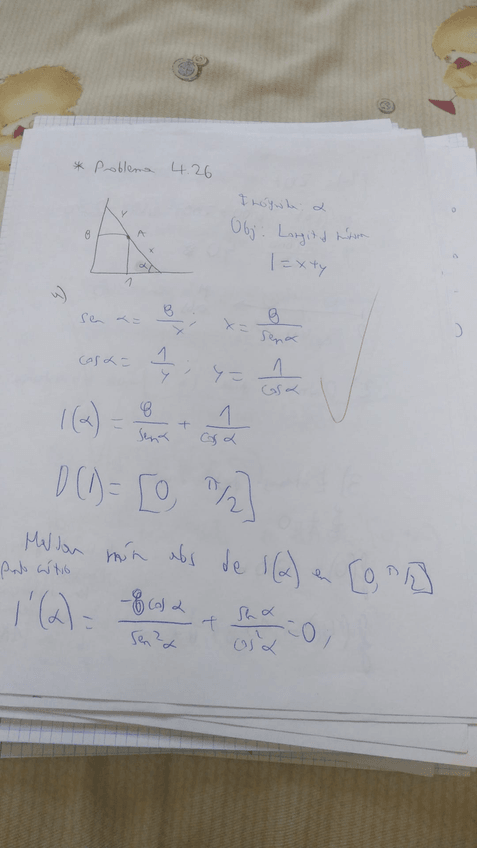 * Problema 4.26
Incógnita: α
Obj: Longitud mínima
l = x+y
y
8
A
x
α
1
a)
sen α = 8/x ; x = 8/senα
cosα = 1/y ; y = 1/cosα
l(α) = 8/senα + 1/cosα
D(l) = [0, π/2]
Hallar mín abs de l(α) en [0, π/2]
l'(α) = -8 cosα/sen²α + senα/cos²α = 0,